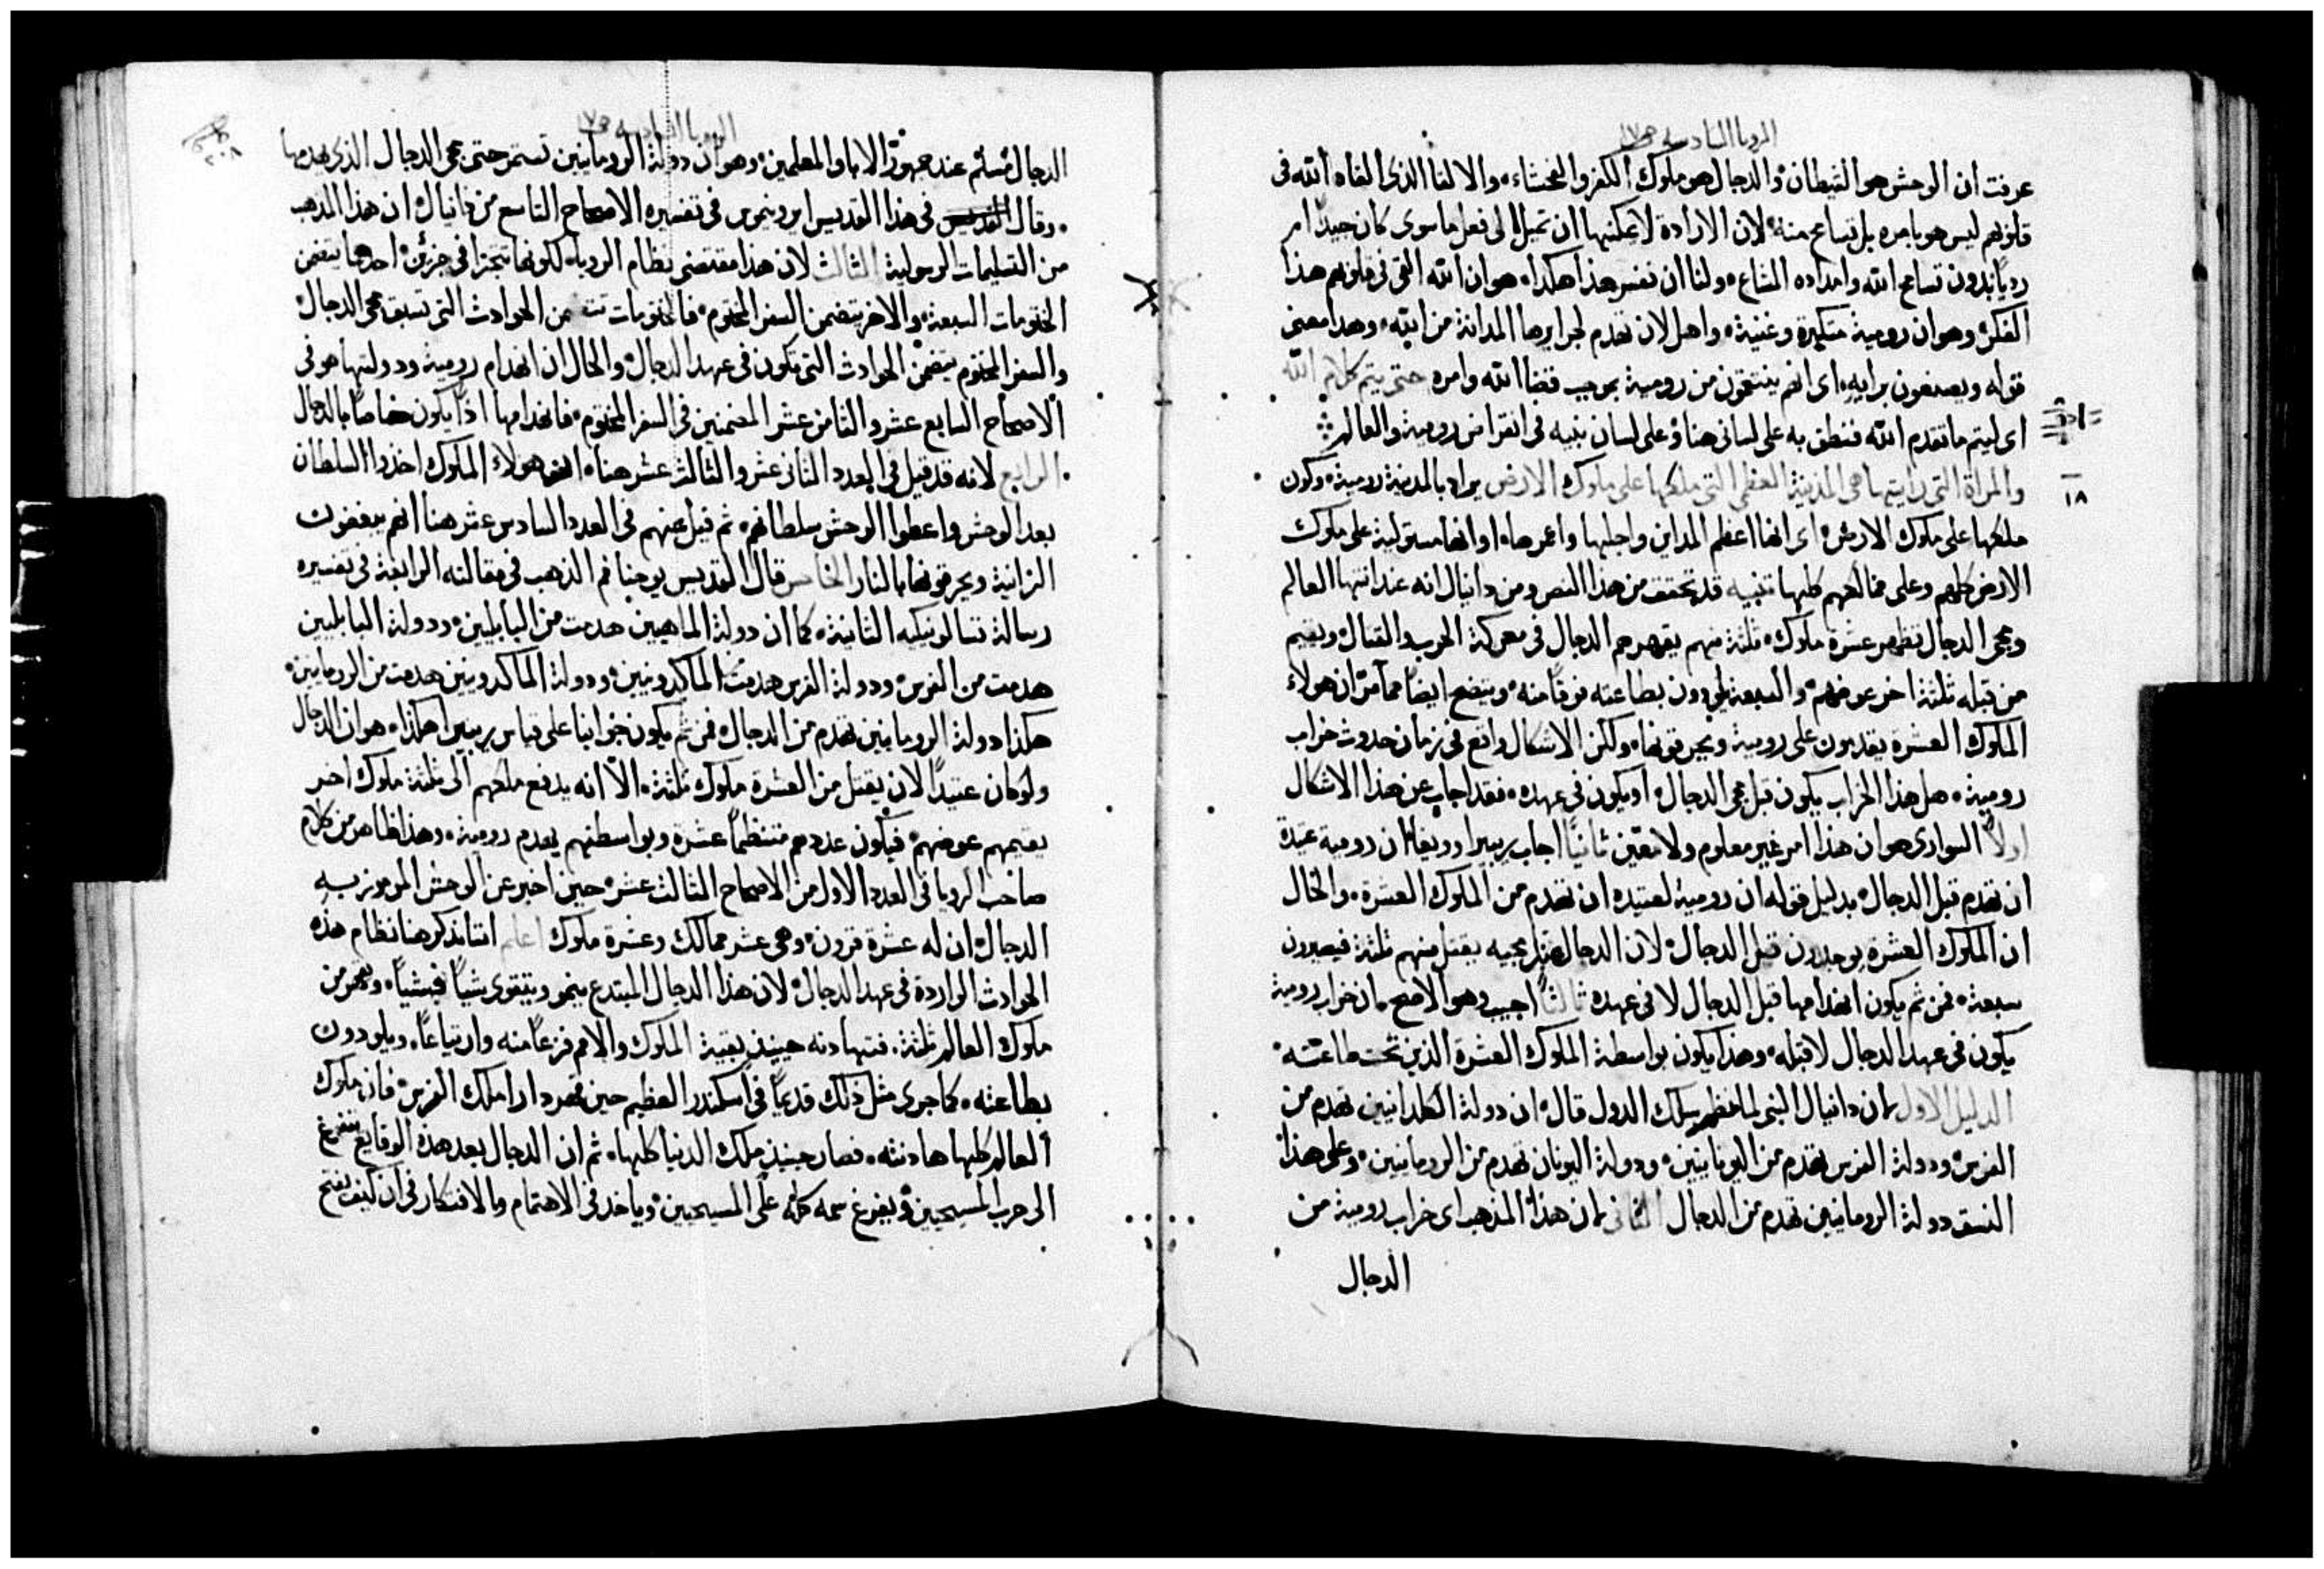 الرويا السادسه ص١٧
عرفت ان الوحش هو الشيطان والدجال هو ملوك الكفر والفحشاء والالقا الذي القاه الله في
قلوبهم ليس هو بامره بل بتسامح منه لان الارادة لا يمكنها ان تميل الى فعل ما سوى كان جيدا ام
رديا بدون تسامح الله وامداده الشاع ولنا ان نفسر هذا هكذا هو ان الله القى في قلوبهم هذا
الفكر وهو ان رومية متكبرة وغنية واهل لان تهدم لجرايرها المدانة من الله وهذا معنى
قوله ويصنعون برايه اى انهم ينتقمون من رومية بموجب قضا الله وامره حتى يتم كلام الله
اى ليتم ما تقدم الله فنطق به على لسانى هنا وعلى لسان نبيه في انقراض رومية والعالم
١٨
والمراة التى رايتها هى المدينة العظمى التى ملكها على ملوك الارض يراد بالمدينة رومية وكون
ملكها على ملوك الارض اى انها اعظم المداين واجلها واعمرها او انها مستولية على ملوك
الارض كلهم وعلى ممالكهم كلها تنبيه قد تحقق من هذا النص ومن دانيال انه عند انتها العالم
ومجى الدجال تظهر عشرة ملوك ثلثة منهم يقهرهم الدجال في معركة الحرب والقتال ويقيم
من قبله ثلثة اخر عوضهم والسبعة يلودون بطاعته خوفا منه ويتضح ايضا مما مر ان هولاء
الملوك العشرة يقدمون على رومية ويحرقونها ولكن الاشكال واقع في زمان حدوث خراب
رومية هل هذا الخراب يكون قبل مجى الدجال او يكون في عهده فقد اجاب عن هذا الاشكال
اولا السوارى هو ان هذا امر غير معلوم ولا متعين ثانيا اجاب بربيرا ووريغا ان رومية عتيدة
ان تهدم قبل الدجال بدليل قوله ان رومية لعتيده ان تهدم من الملوك العشرة والحال
ان الملوك العشرة يوجدون قبل الدجال لان الدجال قبل مجيه يقتل منهم ثلثة فيصيرون
سبعة فمن ثم يكون انهدامها قبل الدجال لا في عهده ثالثا اجيب وهو الاصح ان خراب رومية
يكون في عهد الدجال لا قبله وهذا يكون بواسطة الملوك العشرة الذين تحت طاعته
الدليل الاول لان دانيال النبى لما نظم سلك الدول قال ان دولة الكلدانيين تهدم من
الفرس ودولة الفرس تهدم من اليونانيين ودولة اليونان تهدم من الرومانيين وعلى هذا
النسق دولة الرومانيين تهدم من الدجال الثانى لان هذا المذهب اى خراب رومية من
الدجال
الرويا السادسه ص١٧
٢٠٨
الدجال مسلم عند جمهور الابا والمعلمين وهو ان دولة الرومانيين تستمر حتى مجى الدجال الذى يهدمها
وقال القديس في هذا القديس ايرونيموس في تفسيره الاصحاح التاسع من دانيال ان هذا المذهب
من التسليمات الرسولية الثالث لان هذا مقتضى نظام الرويا لكونها تتجزا في جزئين احدهما يتضمن
الختومات السبعة والاخر يتضمن السفر المختوم فالختومات تتضمن الحوادث التى تسبق مجى الدجال
والسفر المختوم يتضمن الحوادث التى تكون في عهد الدجال والحال ان انهدام رومية ودولتها هو في
الاصحاح السابع عشر والثامن عشر المضمنين في السفر المختوم فانهدامها اذا يكون خاصا بالدجال
الرابع لانه قد قيل في العدد الثانى عشر والثالث عشر هنا ان هولاء الملوك اخذوا السلطان
بعد الوحش واعطوا الوحش سلطانهم ثم قيل عنهم في العدد السادس عشر هنا انهم يبغضون
الزانية ويحرقونها بالنار الخامس قال القديس يوحنا فم الذهب في مقالته الرابعة في تفسيره
رسالة تسالونيكيه الثانية كما ان دولة الماهيين هدمت من البابليين ودولة البابليين
هدمت من الفرس ودولة الفرس هدمت الماكدونيين ودولة الماكدونيين هدمت من الرومانيين
هكذا دولة الرومانيين تهدم من الدجال فمن ثم يكون جوابنا على قياس بربيرا هكذا هو ان الدجال
ولو كان عتيدا لان يقتل من العشرة ملوك ثلثة الا انه يدفع ملكهم الى ثلثة ملوك اخر
يقيمهم عوضهم فيكون عددهم منتظما عشرة وبواسطتهم يهدم رومية وهذا ظاهر من كلام
صاحب الرويا في العدد الاول من الاصحاح الثالث عشر حين اخبر عن الوحش المرموز به
الدجال ان له عشرة قرون وهى عشر ممالك وعشرة ملوك اعلم اننا نذكر هنا نظام هذه
الحوادث الواردة في عهد الدجال لان هذا الدجال المبتدع ينمو ويتقوى شيا فشيا ويقهر من
ملوك العالم ثلثة فتهادنه حينيذ بقية الملوك والامم فزعا منه وارتياعا ويلودون
بطاعته كما جرى مثل ذلك قديما في اسكندر العظيم حين قهر دارا ملك الفرس فان ملوك
العالم كلها هادنته فصار حينيذ ملك الدنيا كلها ثم ان الدجال بعد هذه الوقايع يتفرغ
الى حرب المسيحيين ويفرغ سمه كله على المسيحيين وياخذ في الاهتمام والافتكار في ان كيف يفتح